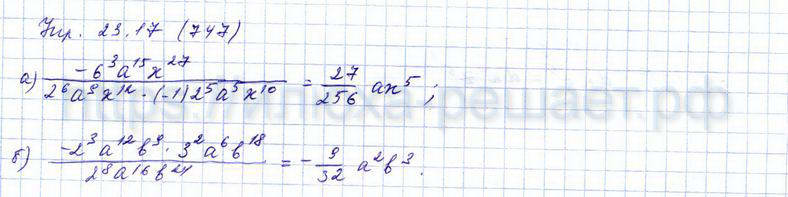 Упр. 23.17 (747)
а) \frac{-6^3 a^{15} x^{27}}{2^6 a^9 x^{12} \cdot (-1) 2^5 a^5 x^{10}} = \frac{27}{256} ax^5;
б) \frac{-2^3 a^{12} b^9 \cdot 3^2 a^6 b^{18}}{2^8 a^{16} b^{24}} = -\frac{9}{32} a^2 b^3.